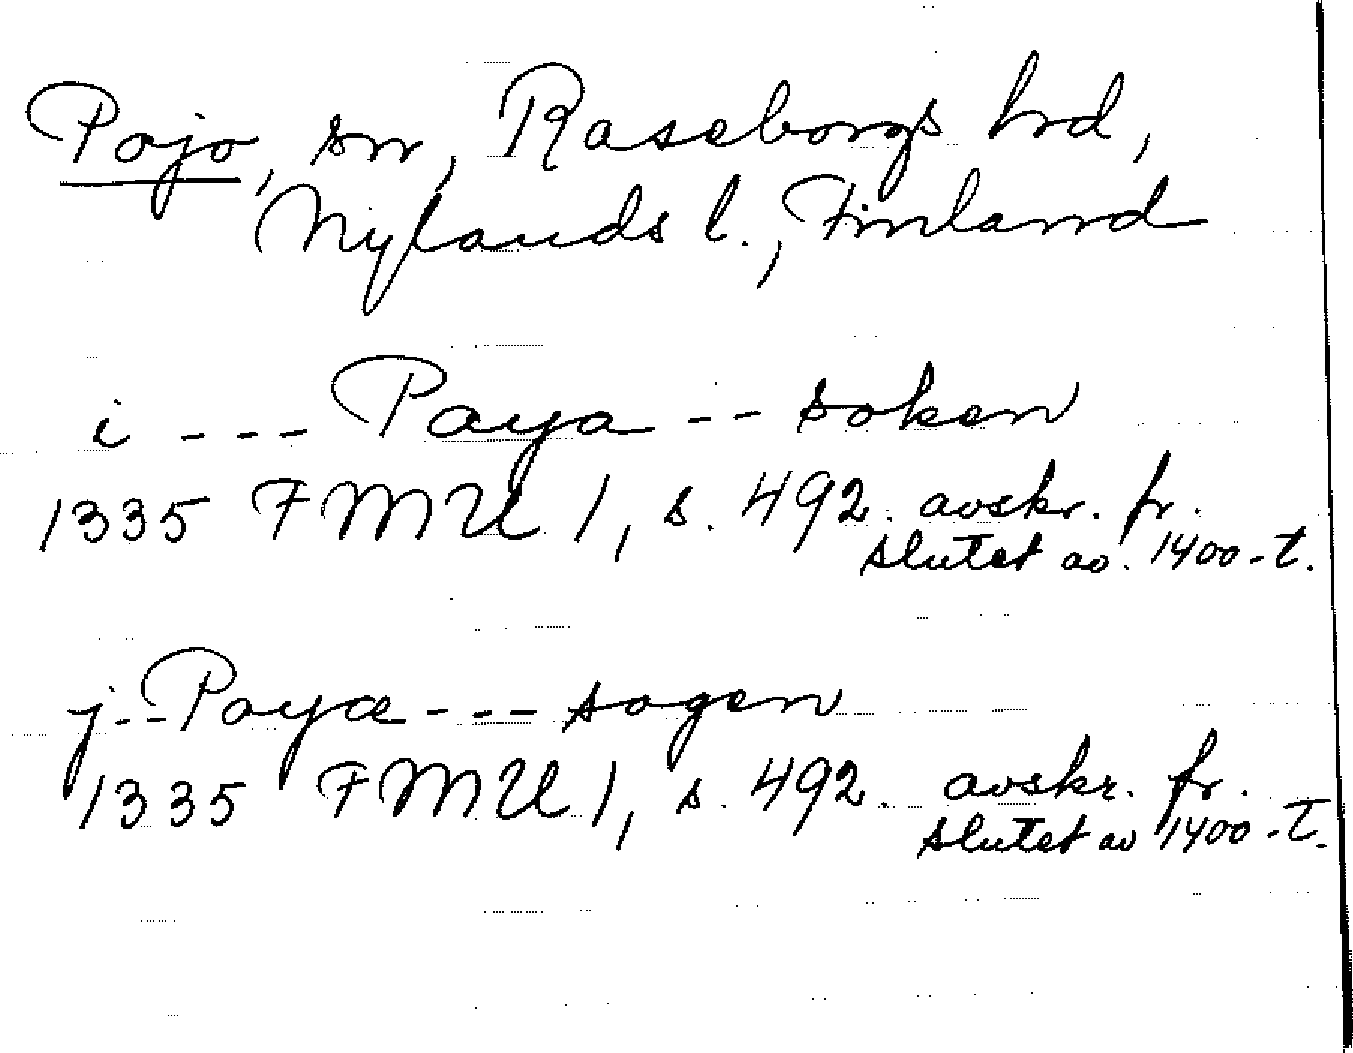 Pojo, sn, Raseborgs hrd,
Nylands l., Finland
i --- Paya -- soken
1335 FMU 1, s. 492. avskr. fr.
slutet av. 1400-t.
j -- Poyæ --- sogen
1335 FMU 1, s. 492. avskr. fr.
slutet av 1400-t.